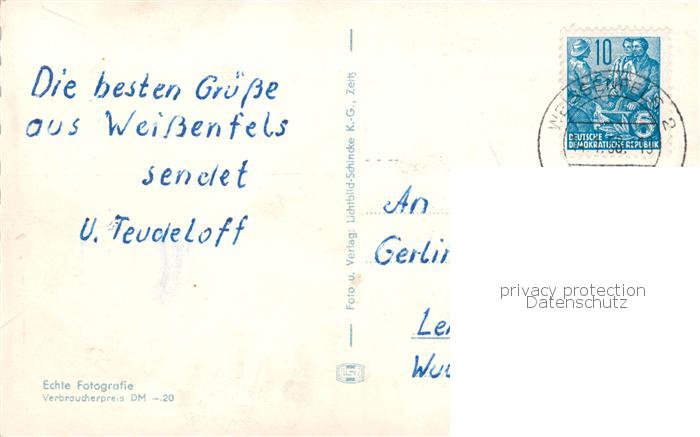 Die besten Grüße
aus Weißenfels
sendet
U. Teudeloff
Echte Fotografie
Verbraucherpreis DM –.20
Foto u. Verlag: Lichtbild-Schincke K.-G., Zeitz
10
DEUTSCHE
DEMOKRATISCHE REPUBLIK
WEISSENFELS 2
An
Gerlin
privacy protection
Datenschutz